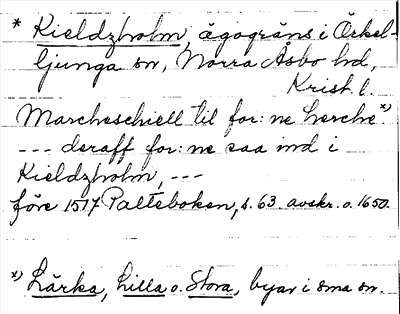 * Kieldzholm, ägogräns i Örkel-
ljunga sn, Norra Åsbo hd,
Krist. l.
Marcheschiell til for: ne Lerche x)
--- deraff for: ne saa ind i
Kieldzholm, ---
före 1517 Palteboken, s. 63. avskr. o. 1650.
x) Lärka, Lilla o. Stora, byar i sma sn.